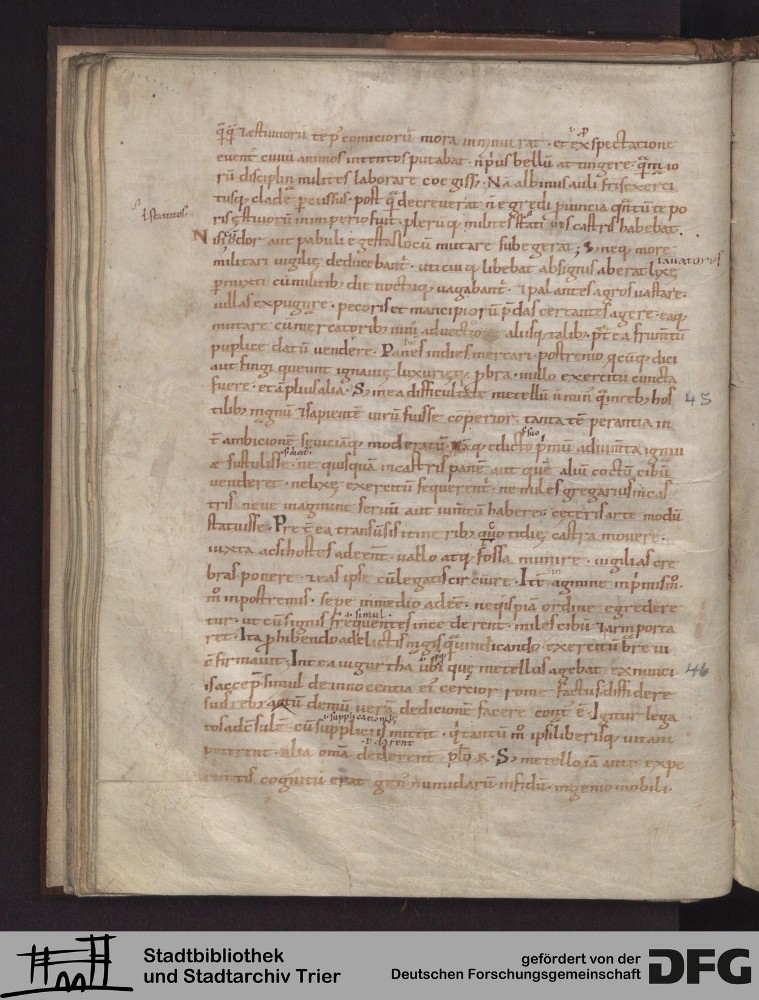 q̄q̄ ⁊ æstiuiorū tēp̄ comiciorū mora inminuerat · et ex spectatione
euent ciuiū animos intentos putabat · n̄ prius bellū attingere · quā maio
rū disciplina milites laborare coegiss; Nā albinus auli fr̄is exerci
tusq; clade perculsus · postquā decreuerat n̄ egredi prouincia quantū tēpo
ris estiuorū in imperio fuit · plerūq; milites statiuis castris habebat ·
ł statiuos ·
Nisi odor aut pabuli egestas locū mutare subegerat ; S; neq; more
militari uigilie deducebant · uti cuiq; libebat ab signis aberat lixe
permixti cū militib; die noctuq; uagabant · ⁊ palantes agros uastare ·
uillas expugnare · pecoris et mancipiorū p̄das certantes agere · eaq;
mutare cū mercatorib; uino aduectio aliisq; talib; pret ea frumtū
puplice datū uendere · Panes in dies mercari · postremo quecūq; dici
aut fingi queunt ignauie luxurieq; probra · in illo exercitu cuncta
fuere · et āplius alia · S; in ea difficultate metellū n̄ min quā in reb; hos
45
tilib; magnū ⁊ sapientē uirū fuisse conperior · tanta tēperantia in
t̄ ambicionē seuiciāq; moderatū · Nāq; edicto primū adiumta ignaui
æ sustulisse · ne quisquā in castris panē aut quē aliū coctū cibū
uenderet · ne lixe exercitū sequerent · ne miles gregarius in cas
tris neue in agmine seruū aut iumtū haberet · ceteris arte modū
statuisse · Pret ea transuersis itinerib; quotidie castra mouere ·
iuxta ac si hostes adeent · uallo atq; fossa munire · uigilias cre
bras ponere · ⁊ eas ipse cū legatis circuire · Itē in agmine in primis m̄ ·
m̄ in postremis · sepe in medio adee · ne quispiā ordine egredere
tur · ut cū signis frequentes incederent · miles cibū ⁊ arm porta
ret · Ita prohibendo a delictis magis quā uindicando exercitū breui
c̄firmauit ; Int ea iugurtha ubi que metellus agebat ex nunci
46
is accep · simul de innocentia eī cercior rome factus diffidere
suis reb; ac tū demū uerā dedicionē facere conat ē · Igitur lega
tos ad c̄sulē cū suppliciis mittit · qui tantū m̄ ipsi liberisq; uitam
peterent · alia omia dederent p̄lo R · S; metello iā antea expe
rimtis cognitū erat genus numidarū infidū · ingenio mobili ·
Stadtbibliothek
und Stadtarchiv Trier
gefördert von der
Deutschen Forschungsgemeinschaft
DFG